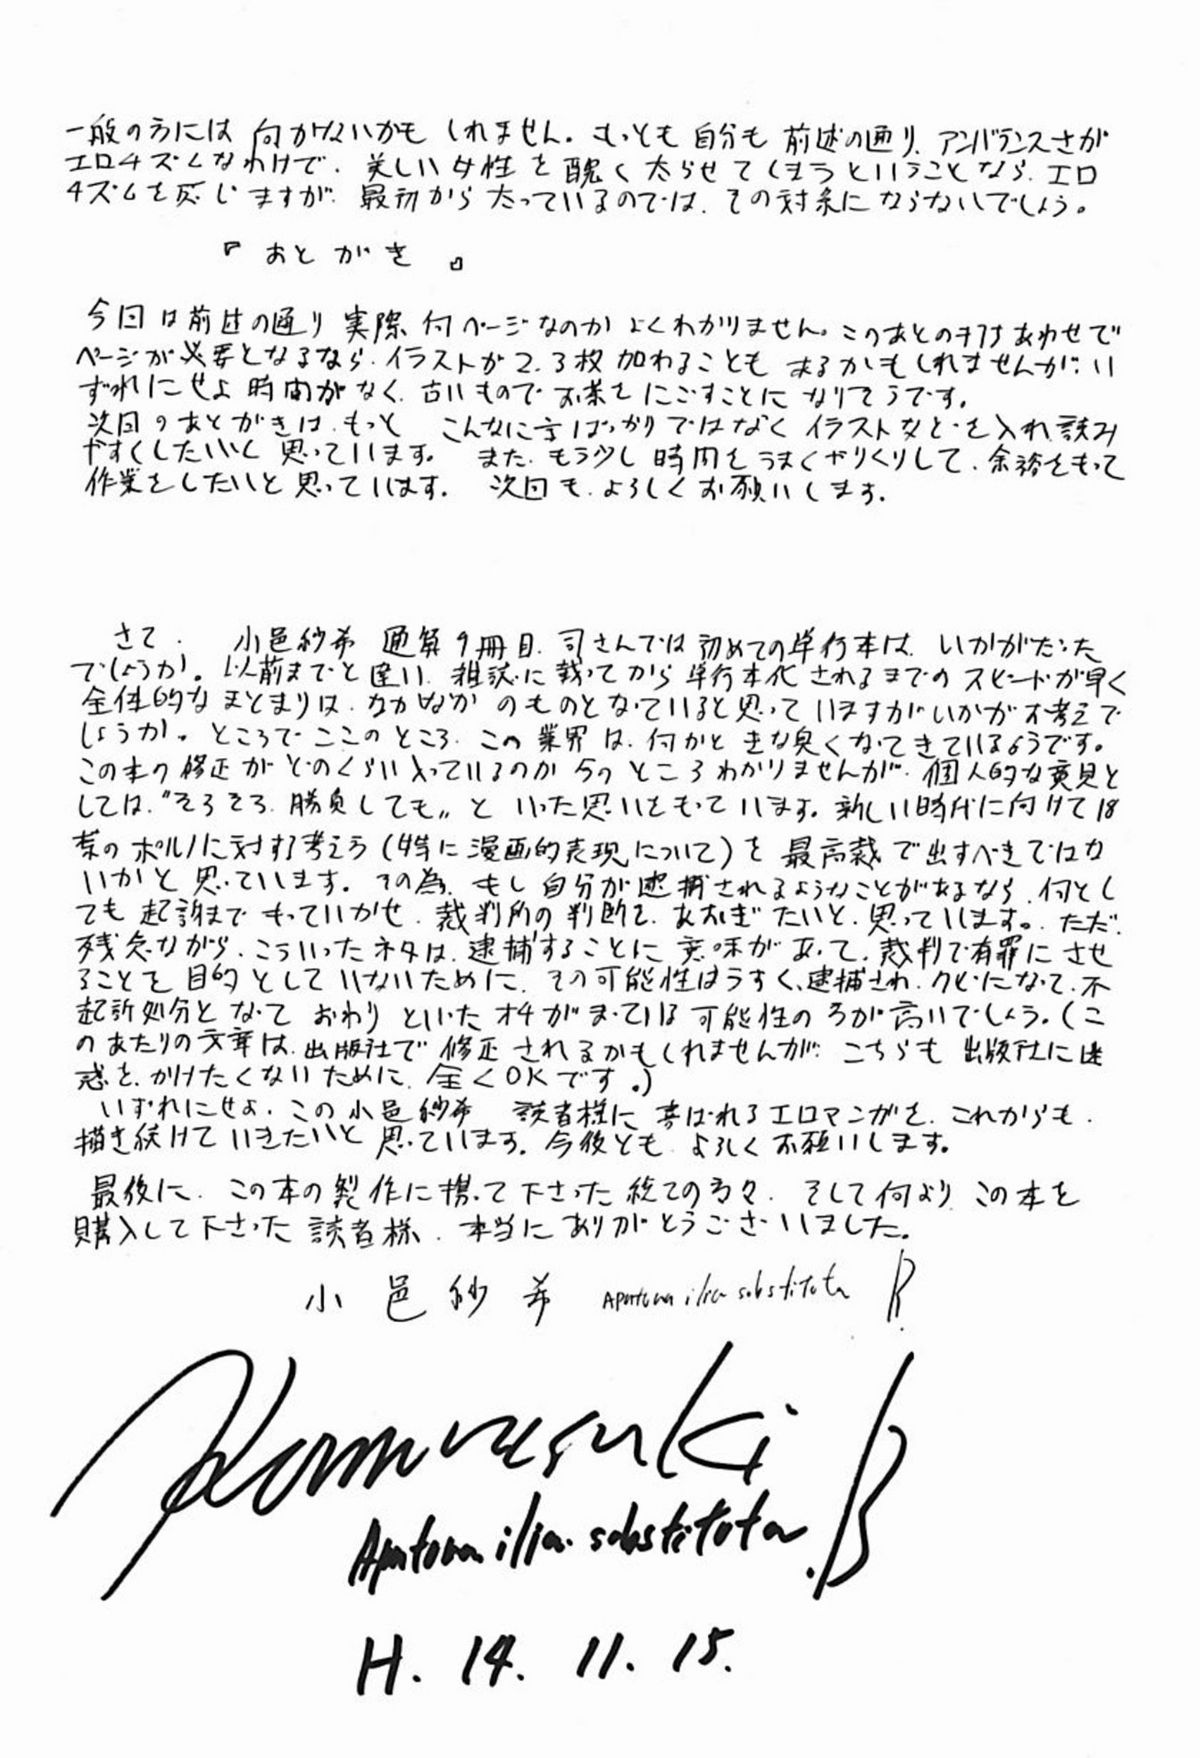 一般の方には 向かないかも しれません。もっとも 自分も 前述の通り、アンバランスさが
エロチズムなわけで、美しい女性を醜く太らせてしまうということなら、エロ
チズムを感じますが、最初から太っているのでは、その対象にならないでしょう。
『 あとがき 』
今回は前述の通り 実際、何ページなのか よくわかりません。このあとの打ちあわせで
ページが必要となるなら、イラストが2、3枚 加わることも あるかもしれませんが、い
ずれにせよ 時間がなく、古いもので お茶をにごすことに なりそうです。
次回のあとがきは、もっと こんなに字ばっかりではなく イラストなどを入れ 読み
やすくしたいと 思っています。 また、もう少し 時間をうまくやりくりして、余裕をもって
作業をしたいと思っています。 次回も、よろしくお願いします。
さて、 小邑紗希 通算9冊目、司さんでは初めての単行本は、いかがだった
でしょうか。以前までと違い、雑誌に載ってから 単行本化されるまでのスピードが早く
全体的なまとまりは、なかなか のものとなっていると思って いますがいかがお考えで
しょうか。ところで ここのところ、この業界は、何かと きな臭くなってきているようです。
この本の修正がどのくらい入っているのか 今の ところわかりませんが、個人的な意見と
しては、"そろそろ、勝負しても〟と いった思いをもって います。新しい時代に向けて18
禁のポルノに対する考え方(特に漫画的表現について)を 最高裁で出すべきではな
いかと 思っています。その為、もし自分が逮捕されるようなことがあるなら、何とし
ても 起訴まで もっていかせ、裁判所の判断を、あおぎたいと、思っています。ただ、
残念ながら、こういったネタは、逮捕することに 意味があって、裁判で有罪にさせ
ることを 目的としていないために、その可能性はうすく、逮捕され、クビになって、不
起訴処分と なって おわり といった オチがまっている 可能性の方が高いでしょう。(こ
のあたりの文章は、出版社で 修正されるかもしれませんが、こちらも 出版社に迷
惑を、かけたくないために、全くOKです。)
いずれにせよ、この小邑紗希 読者様に 喜ばれるエロマンガを、これからも、
描き続けて いきたいと 思っています。今後とも、よろしくお願いします。
最後に、この本の製作に携って下さった 総ての方々、そして何より この本を
購入して下さった 読者様、本当に ありがとうございました。
小邑紗希 Apatura ilia substituta B.
Komurasaki
Apatura ilia. substituta. B
H. 14. 11. 15.